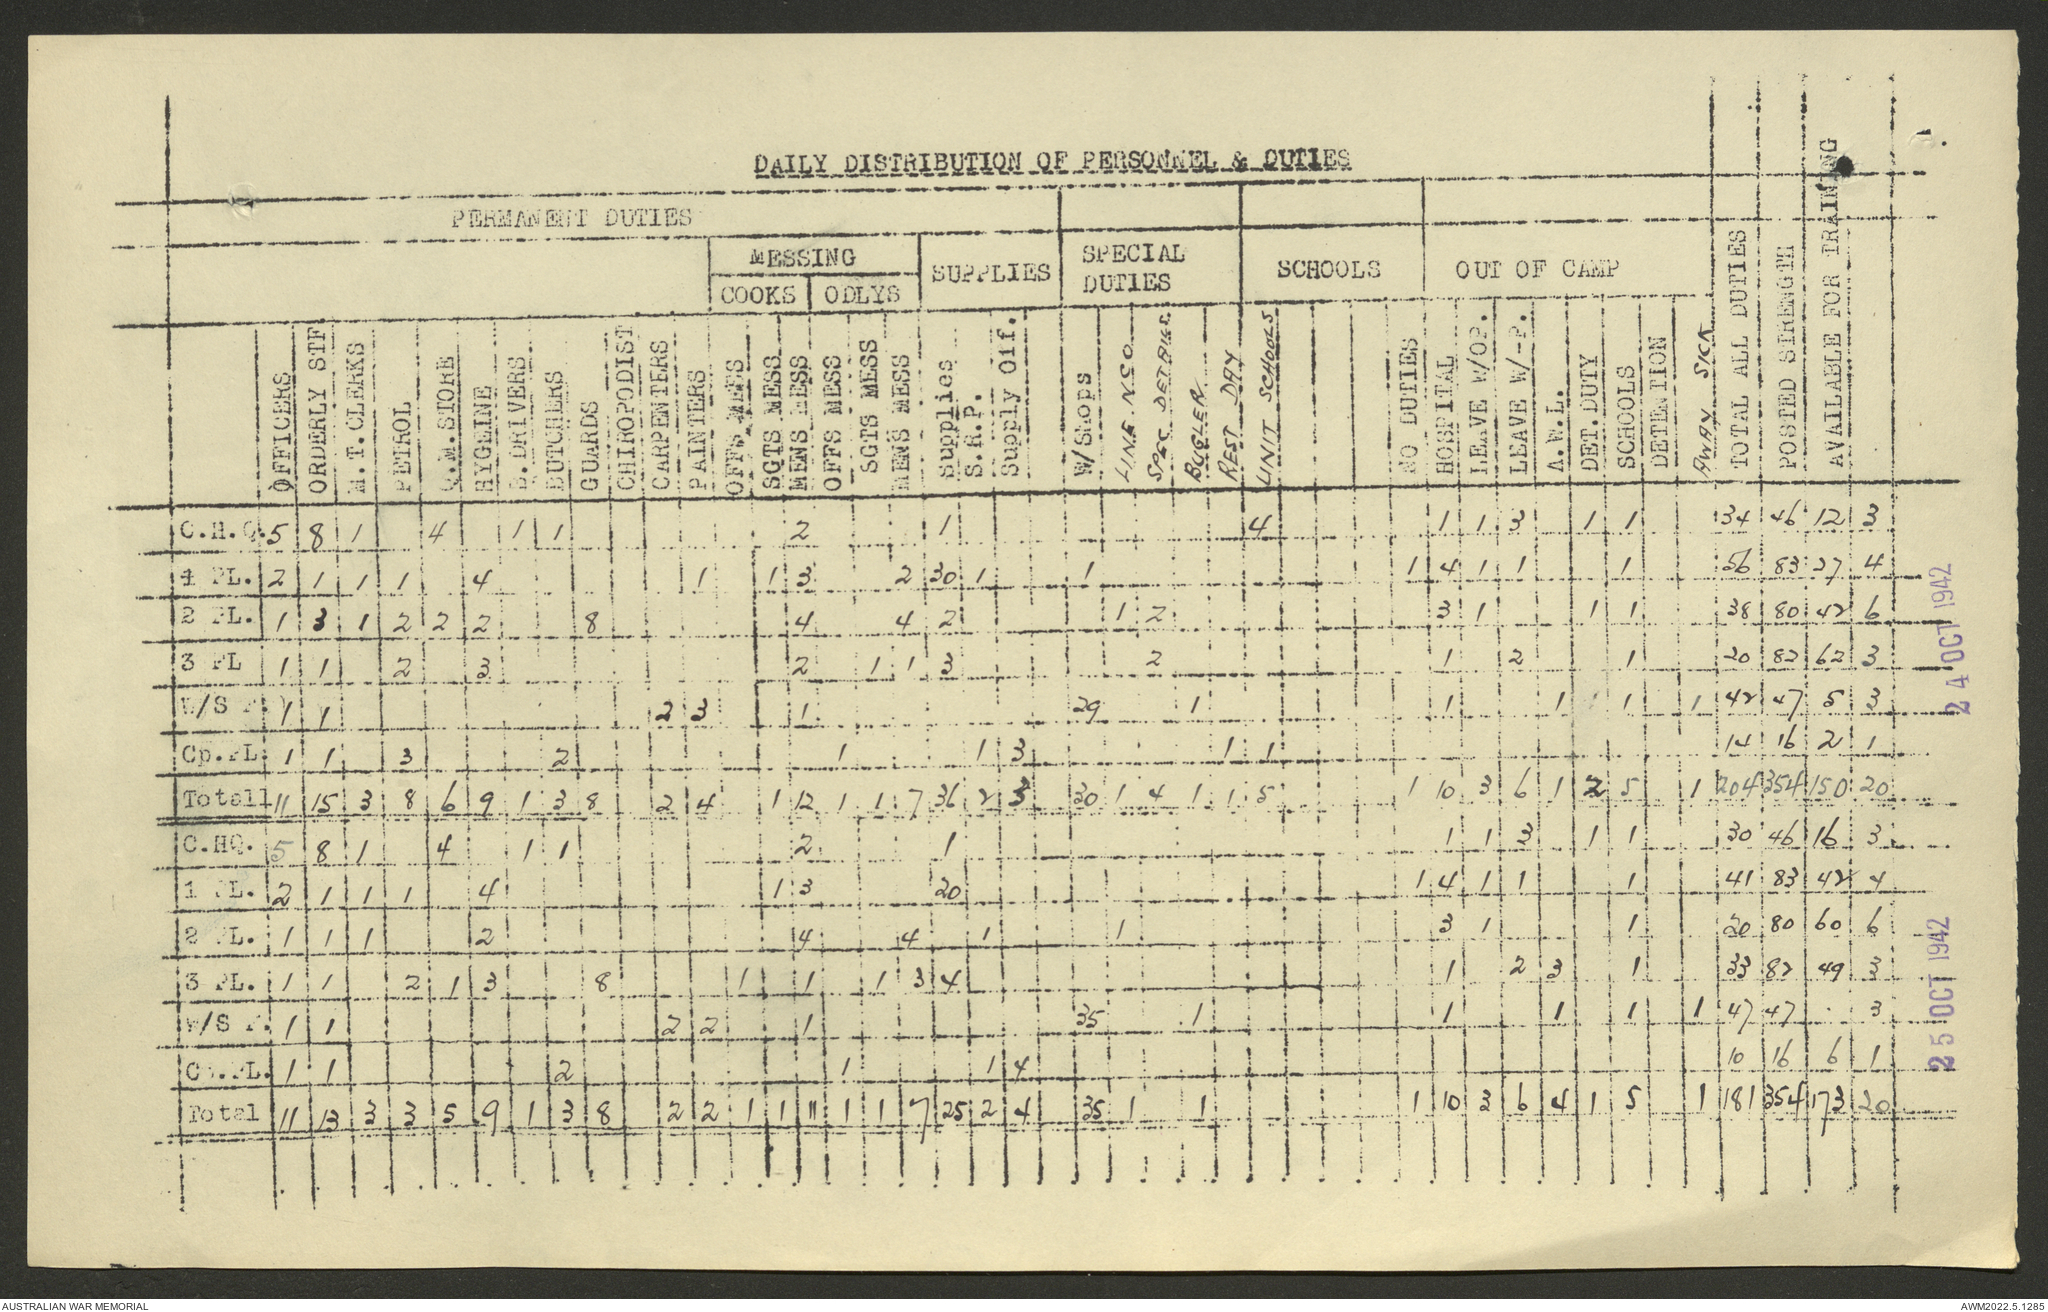 DAILY DISTRIBUTION OF PERSONNEL & DUTIES
PERMANENT DUTIES
MESSING
SUPPLIES
SPECIAL DUTIES
SCHOOLS
OUT OF CAMP
COOKS ODLYS
OFFICERS
ORDERLY STF
M.T.CLERKS
PETROL
Q.M.STORE
HYGEINE
B.DRIVERS
BUTCHERS
GUARDS
CHIROPODIST
CARPENTERS
PAINTERS
OFFS MESS
SGTS MESS
MENS MESS
OFFS MESS
SGTS MESS
MENS MESS
Supplies
S.R.P.
Supply Oif.
W/Shops
LINE N.S.O
SPEC DETAILS
BUGLER
REST DAY
UNIT SCHOOLS
NO DUTIES
HOSPITAL
LEAVE W/OP.
LEAVE W/-P.
A.W.L.
DET.DUTY
SCHOOLS
DETENTION
AWAY SICK
TOTAL ALL DUTIES
POSTED STRENGTH
AVAILABLE FOR TRAINING
C.H.Q. 5 8 1 4 1 1 2 1 4 1 1 3 1 1 34 46 12 3
1 PL. 2 1 1 1 4 1 1 3 2 30 1 1 1 4 1 1 1 56 83 27 4
2 PL. 1 3 1 2 2 2 8 4 4 2 1 2 3 1 1 1 38 80 42 6
3 PL 1 1 2 3 2 1 1 3 2 1 2 1 20 82 62 3
W/S P. 1 1 2 3 1 29 1 1 1 1 1 42 47 5 3
Cp.PL. 1 1 3 2 1 1 3 1 1 14 16 2 1
Totall 11 15 3 8 6 9 1 3 8 2 4 1 12 1 1 7 36 2 3 30 1 4 1 1 5 1 10 3 6 1 2 5 1 204 354 150 20
24 OCT 1942
C.HQ. 5 8 1 4 1 1 2 1 1 1 3 1 1 30 46 16 3
1 PL. 2 1 1 1 4 1 3 20 1 4 1 1 1 41 83 42 4
2 PL. 1 1 1 2 4 4 1 1 3 1 1 20 80 60 6
3 PL. 1 1 2 1 3 8 1 1 1 3 4 1 2 3 1 33 82 49 3
W/S P. 1 1 2 2 1 35 1 1 1 1 1 47 47 . 3
Cp.PL. 1 1 2 1 1 4 10 16 6 1
Total 11 13 3 3 5 9 1 3 8 2 2 1 1 11 1 1 7 25 2 4 35 1 1 1 10 2 6 4 1 5 1 181 354 173 20
25 OCT 1942
AUSTRALIAN WAR MEMORIAL
AWM2022.5.1285